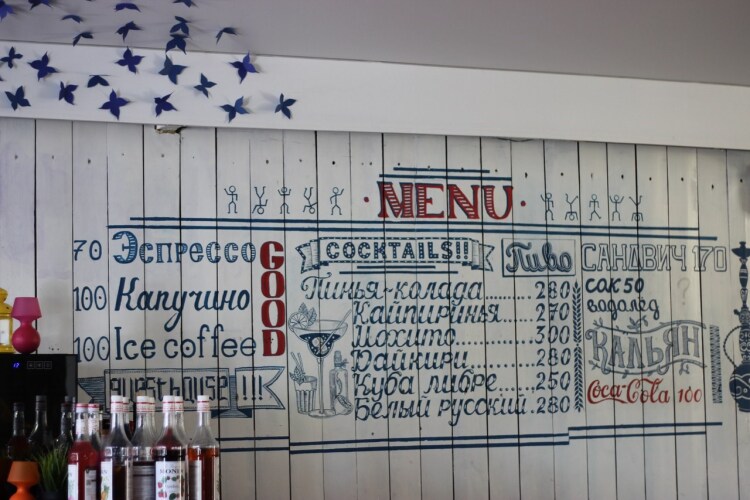 MENU
70 Эспрессо
100 Капучино
100 Ice coffee
GOOD
GUESTHOUSE !!!
COCKTAILS!!
Пинья-колада.........280
Кайпиринья.....270
Мохито..........300
Дайкири........280
Куба либре.....250
Белый русский.280
Пиво
САНДВИЧ 170
сок 50
вода лед
КАЛЬЯН
Coca-Cola 100
MONIN